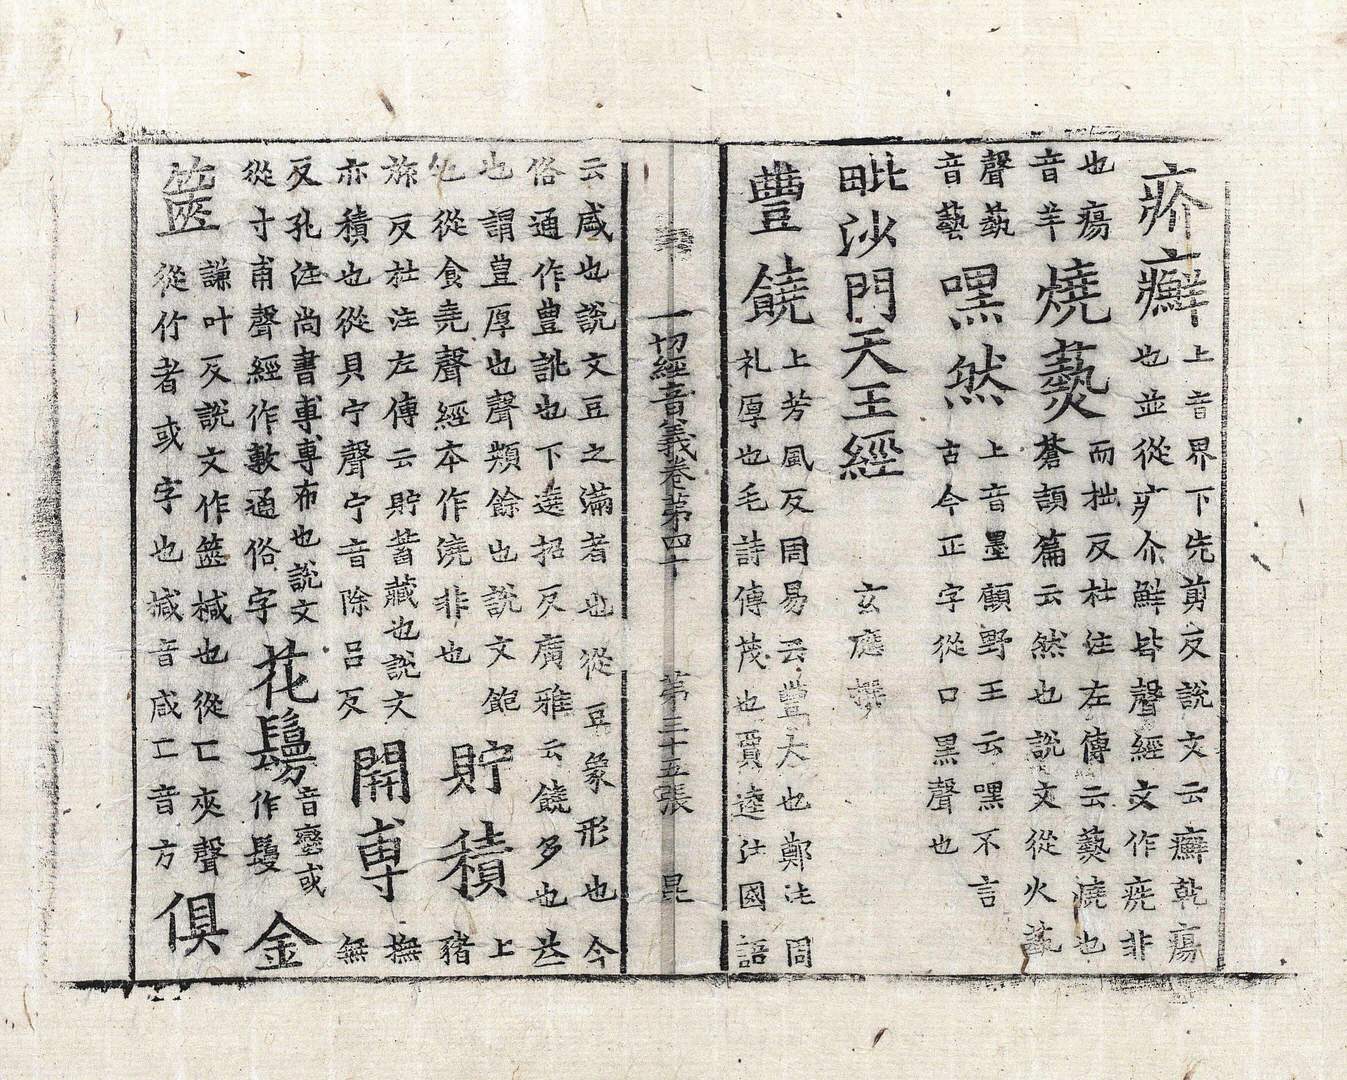 疥癬上音界下先剪反說文云癬乾瘍也並從疒介鮮皆聲經文作㾌非
也瘍音羊燒爇而拙反杜注左傳云爇燒也蒼頡篇云然也說文從火蓺
聲蓺音藝嘿然上音墨顧野王云嘿不言古今正字從口黑聲也
毗沙門天王經 玄應撰
豐饒上芳風反周易云豐大也鄭注周礼厚也毛詩傳茂也賈逵注國語
一切經音義卷第四十 第三十五張 毘
云咸也說文豆之滿者也從豆象形也今俗通作豊訛也下遶招反廣雅云饒多也益
也謂豊厚也聲類餘也說文飽也從食堯聲經本作澆非也貯積上猪
旅反杜注左傳云貯蓄藏也說文亦積也從貝宁聲宁音除呂反開尃撫無
反孔注尚書尃尃布也說文從寸甫聲經作敷通俗字花鬘音蠻或作鬘金
篋謙叶反說文作匧椷也從匚夾聲從竹者或字也椷音咸匚音方俱